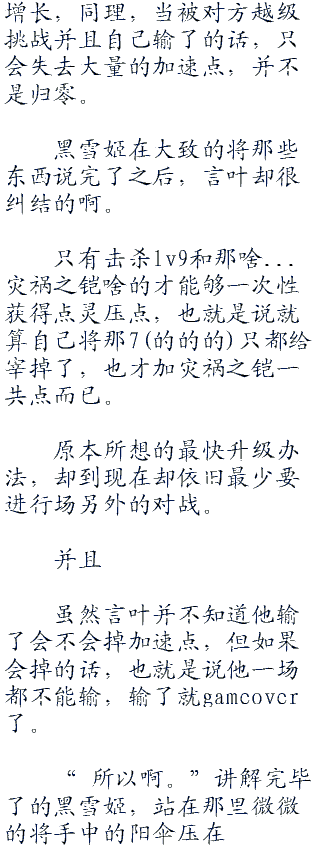 增长，同理，当被对方越级
挑战并且自己输了的话，只
会失去大量的加速点，并不
是归零。
黑雪姬在大致的将那些
东西说完了之后，言叶却很
纠结的啊。
只有击杀lv9和那啥...
灾祸之铠啥的才能够一次性
获得点灵压点，也就是说就
算自己将那7(的的的)只都给
宰掉了，也才加灾祸之铠一
共点而已。
原本所想的最快升级办
法，却到现在却依旧最少要
进行场另外的对战。
并且
虽然言叶并不知道他输
了会不会掉加速点，但如果
会掉的话，也就是说他一场
都不能输，输了就gameover
了。
“ 所以啊。”讲解完毕
了的黑雪姬，站在那里微微
的将手中的阳伞压在